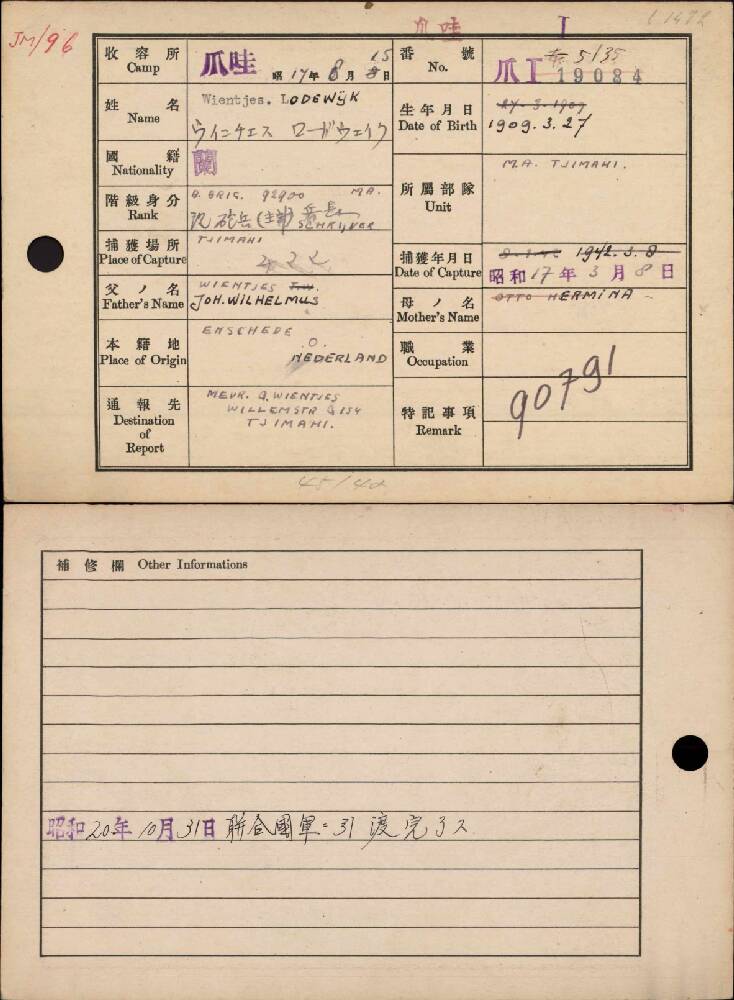 JM/96
爪哇
I
收容所
Camp
爪哇
昭17年8月15日
番號
No.
5135
爪I 19084
姓名
Name
Wientjes. LODEWijK
ウィンチェス ローデウェイク
生年月日
Date of Birth
27-3-1909
1909.3.27
國籍
Nationality
蘭
所屬部隊
Unit
M.A. TJIMAHI.
階級身分
Rank
B. BRIG. 92900 M.A.
砲兵
SCHRIJVER
捕獲場所
Place of Capture
TJIMAHI
捕獲年月日
Date of Capture
8-3-42 1942.3.8
昭和17年3月8日
父ノ名
Father's Name
WIENTJES J.W.
JOH. WILHELMUS
母ノ名
Mother's Name
OTTO HERMINA
本籍地
Place of Origin
ENSCHEDE
.O.
NEDERLAND
職業
Occupation
通報先
Destination
of
Report
MEVR. Q. WIENTJES
WILLEMSTR G 154
TJIMAHI.
特記事項
Remark
90791
45/42
補修欄 Other Informations
昭和20年10月31日 聯合國軍ニ引渡完了ス